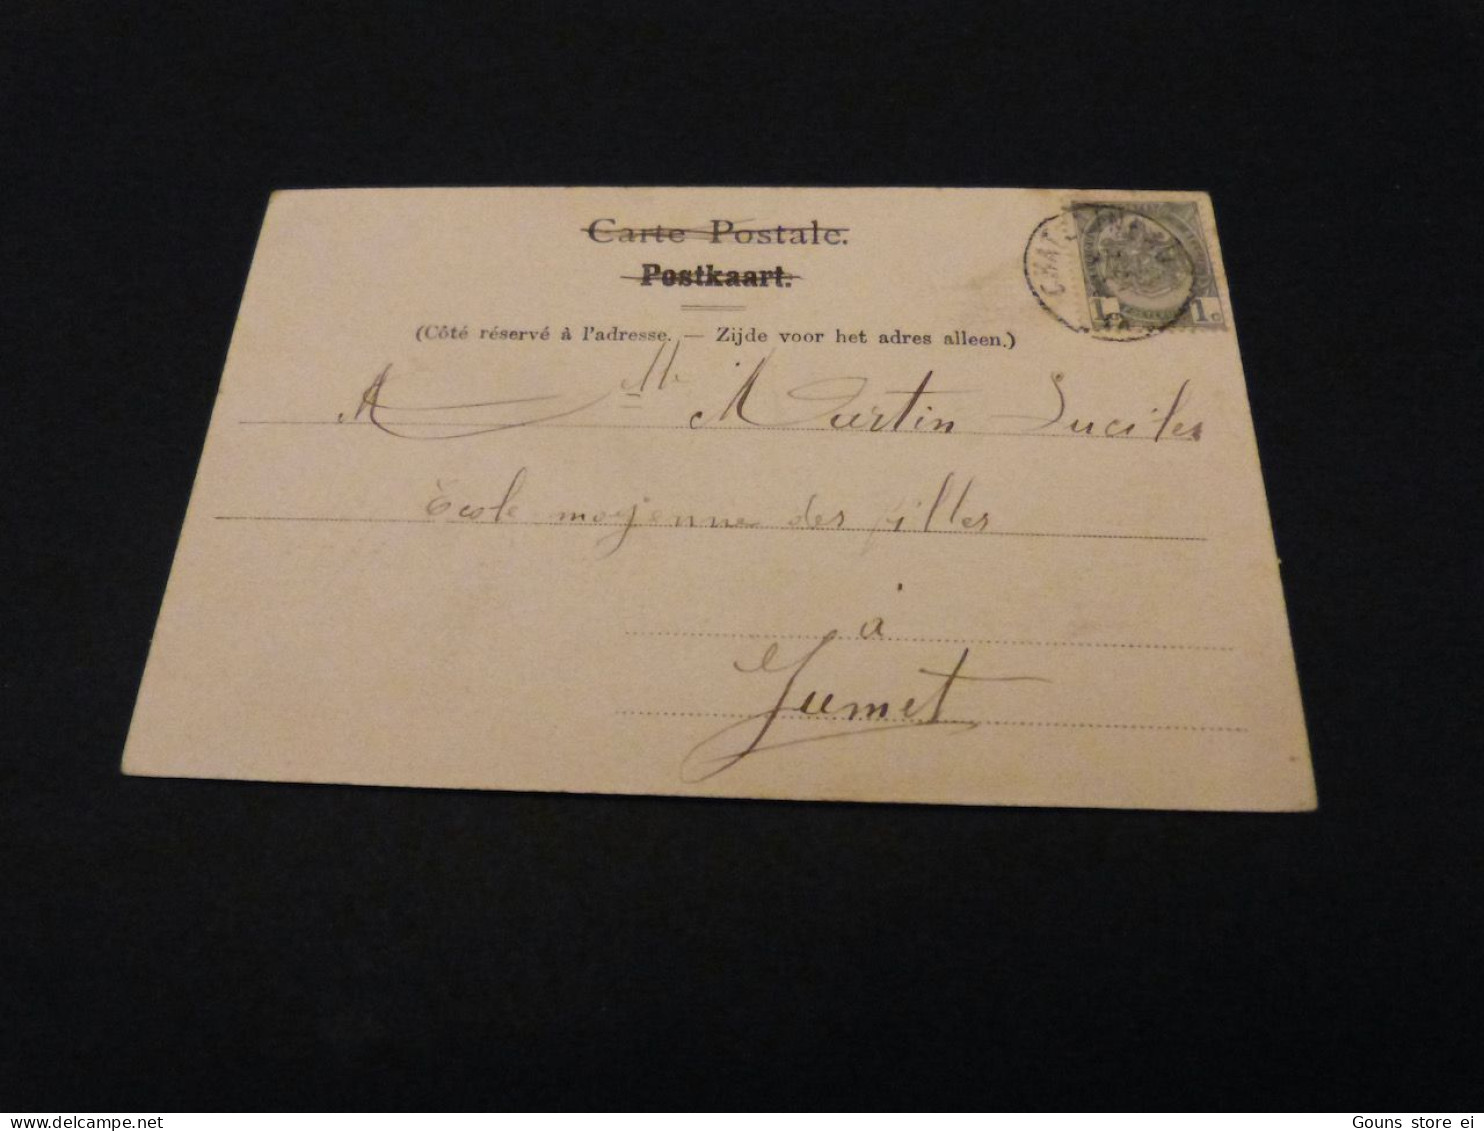 Carte Postale.
Postkaart.
(Côté réservé à l'adresse. — Zijde voor het adres alleen.)
1 1c
A Mlle Martin Lucile
École moyenne des filles
à
Jumet
Gouns store ei